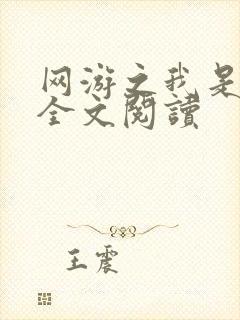 网游之我是
全文閱讀
王震